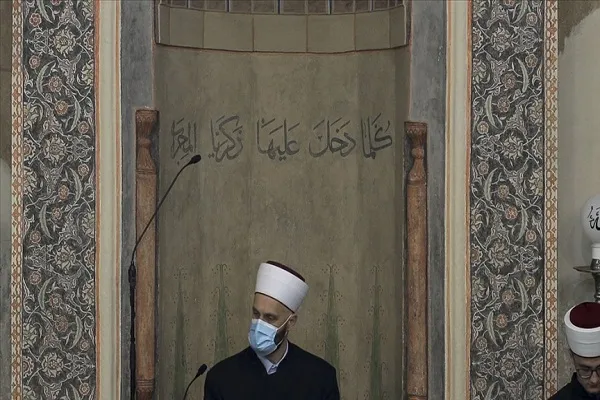 كلما دخل عليها زكريا المحرا